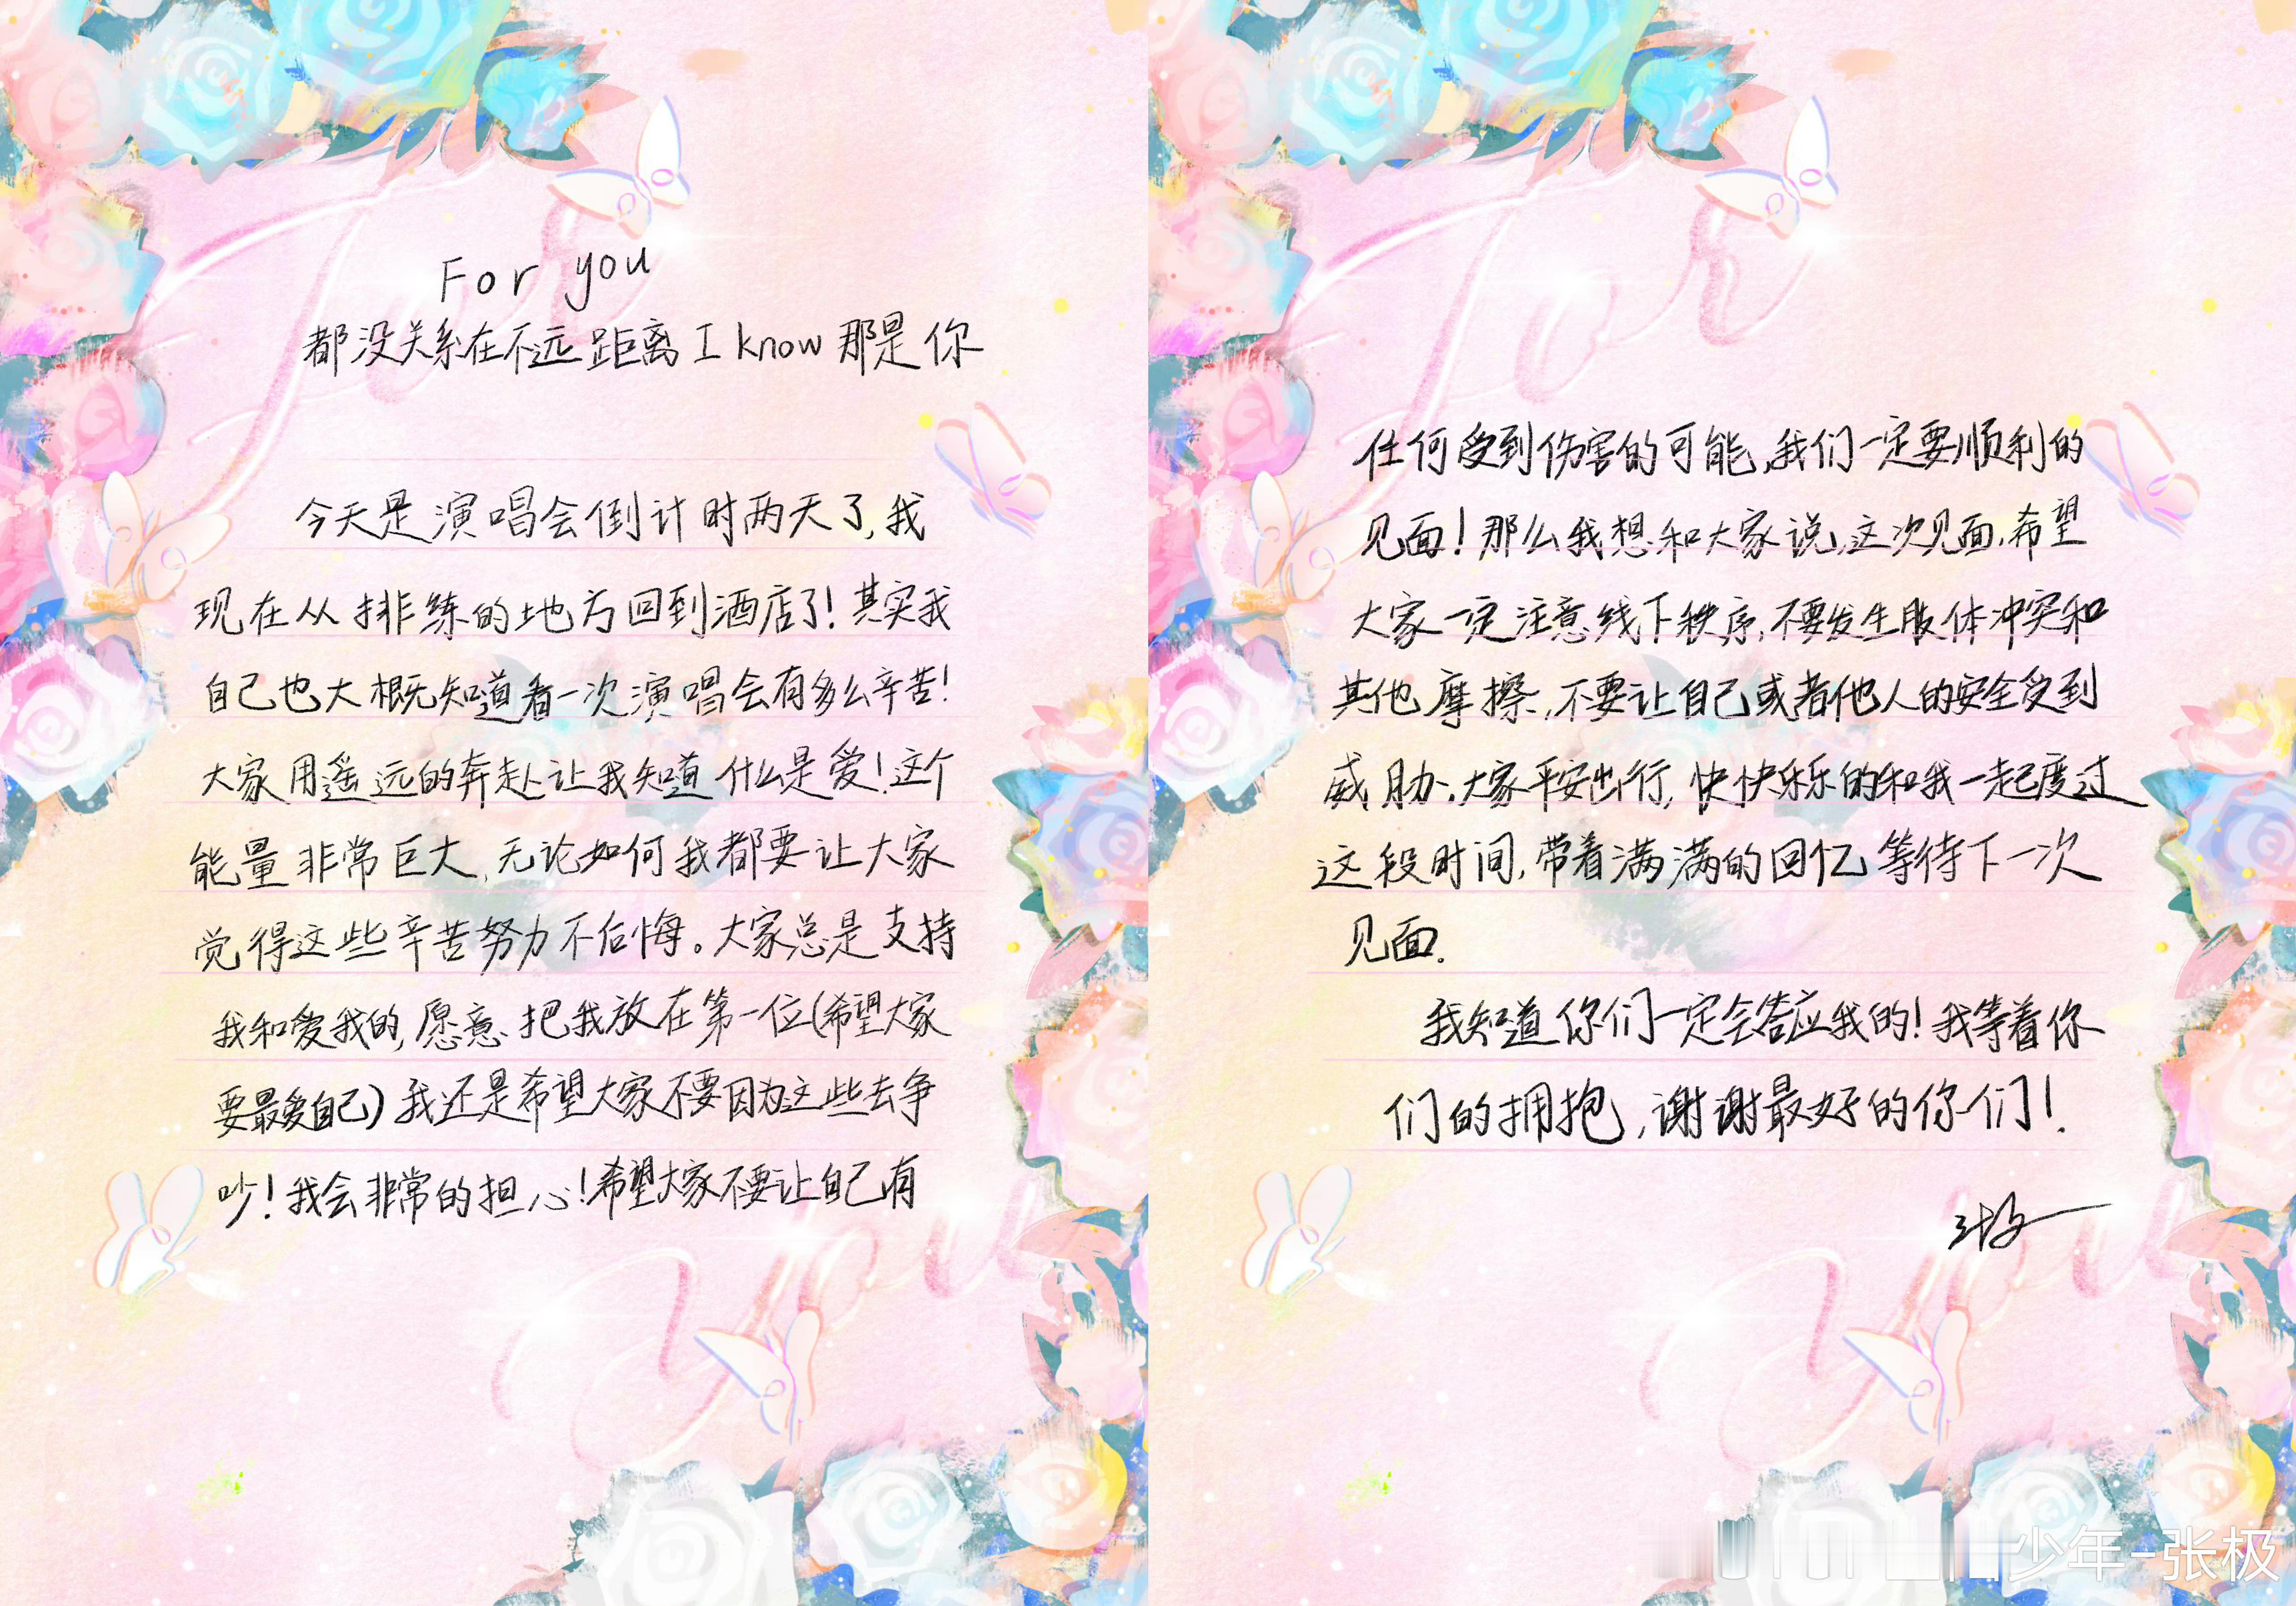 For you
都没关系在不远距离 I know 那是你
今天是演唱会倒计时两天了,我
现在从排练的地方回到酒店了!其实我
自己也大概知道看一次演唱会有多么辛苦!
大家用遥远的奔赴让我知道什么是爱!这个
能量非常巨大,无论如何我都要让大家
觉得这些辛苦努力不后悔。大家总是支持
我和爱我的,愿意把我放在第一位(希望大家
要最爱自己)我还是希望大家不要因为这些去争
吵!我会非常的担心!希望大家不要让自己有
任何受到伤害的可能,我们一定要顺利的
见面!那么我想和大家说,这次见面,希望
大家一定注意线下秩序,不要发生肢体冲突和
其他摩擦,不要让自己或者他人的安全受到
威胁.大家平安出行,快快乐乐的和我一起度过
这段时间,带着满满的回忆等待下一次
见面.
我知道你们一定会答应我的!我等着你
们的拥抱,谢谢最好的你们!
少年-张极